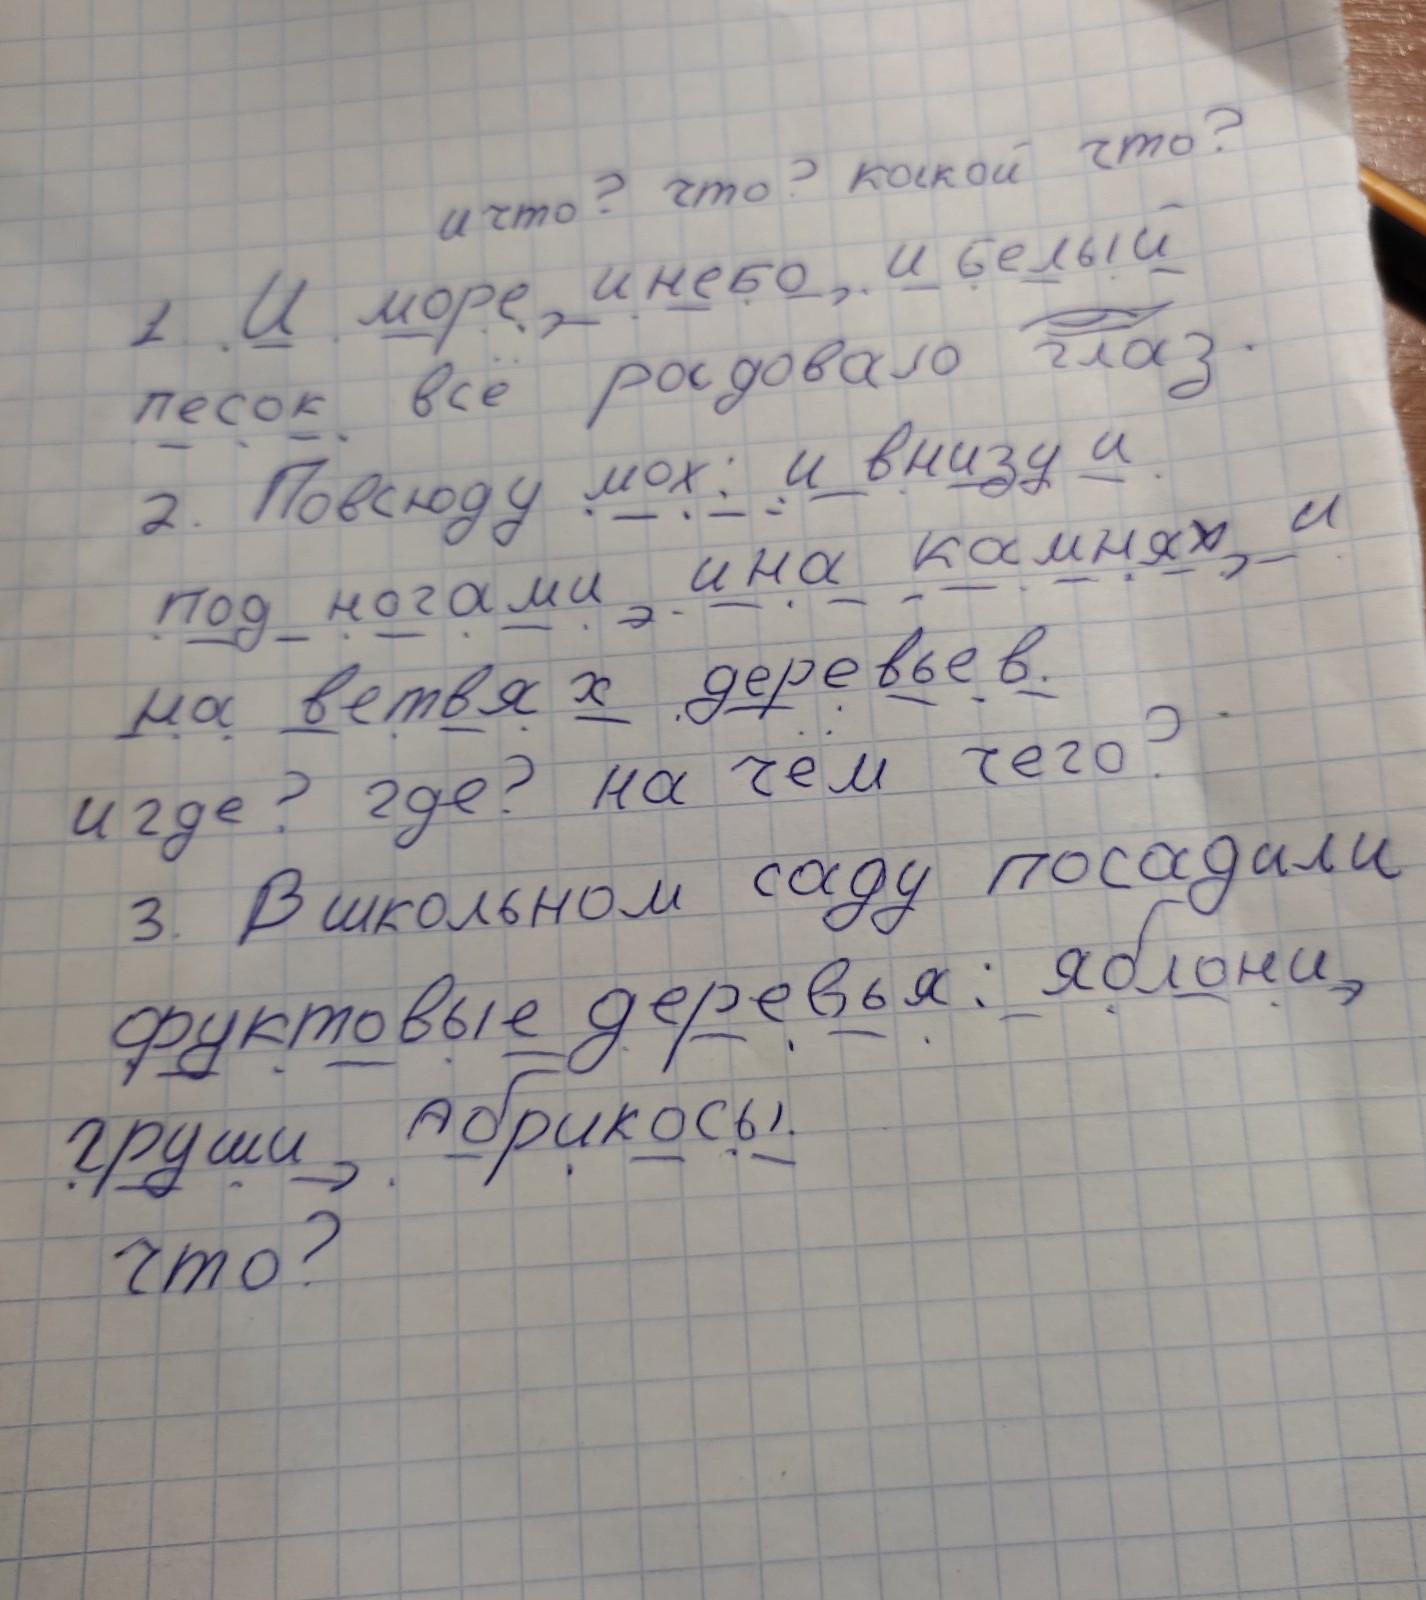 и что? что? какой что?
1. И море, и небо, и белый
песок всё радовало глаз.
2. Повсюду мох: и внизу и
под ногами, и на камнях, и
на ветвях деревьев.
и где? где? на чём чего?
3. В школьном саду посадили
фруктовые деревья: яблони,
груши, абрикосы.
что?